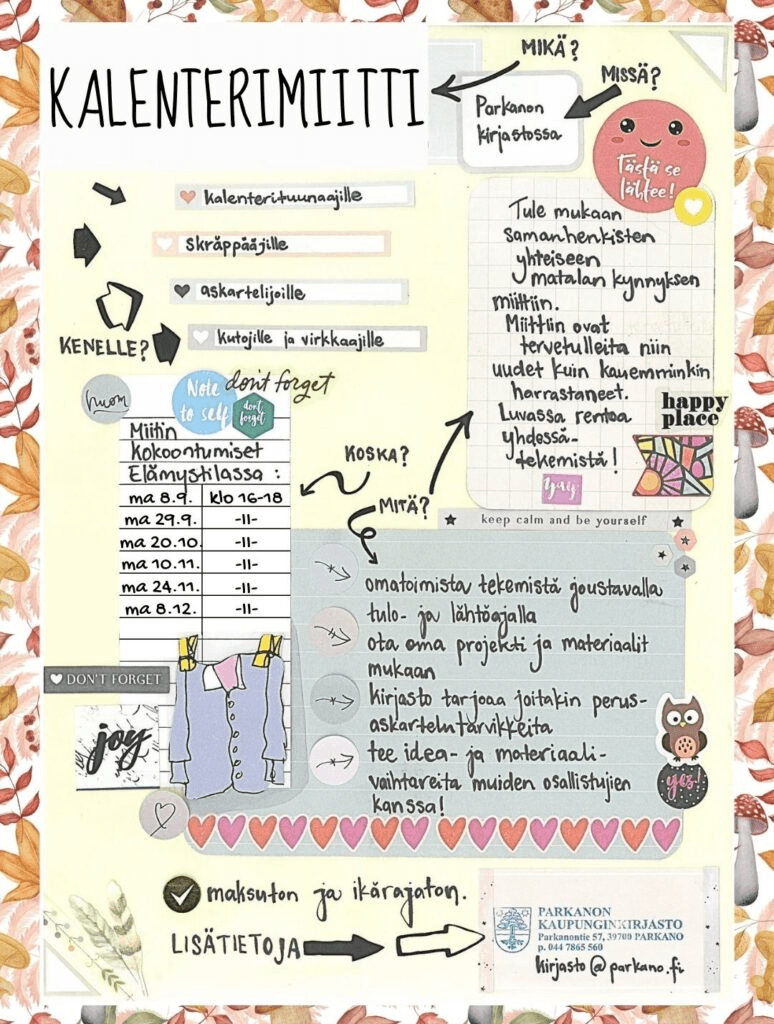 KALENTERIMIITTI
MIKÄ?
MISSÄ?
Parkanon
kirjastossa
Tästä se
lähtee!
kalenterituunaajille
skräppääjille
askartelijoille
kutojille ja virkkaajille
KENELLE?
Tule mukaan
samanhenkisten
yhteiseen
matalan kynnyksen
miittiin.
Miittiin ovat
tervetulleita niin
uudet kuin kauemminkin
harrastaneet.
Luvassa rentoa
yhdessä-
tekemistä!
happy
place
yay
huom
Note
to self
don't forget
don't
forget
Miitin
kokoontumiset
Elämystilassa :
ma 8.9. klo 16-18
ma 29.9. -11-
ma 20.10. -11-
ma 10.11. -11-
ma 24.11. -11-
ma 8.12. -11-
KOSKA?
MITÄ?
keep calm and be yourself
omatoimista tekemistä joustavalla
tulo- ja lähtöajalla
ota oma projekti ja materiaalit
mukaan
kirjasto tarjoaa joitakin perus-
askartelutarvikkeita
tee idea- ja materiaali-
vaihtareita muiden osallistujien
kanssa!
DON'T FORGET
joy
yes!
maksuton ja ikärajaton.
LISÄTIETOJA
PARKANON
KAUPUNGINKIRJASTO
Parkanontie 57, 39700 PARKANO
p. 044 7865 560
kirjasto@parkano.fi